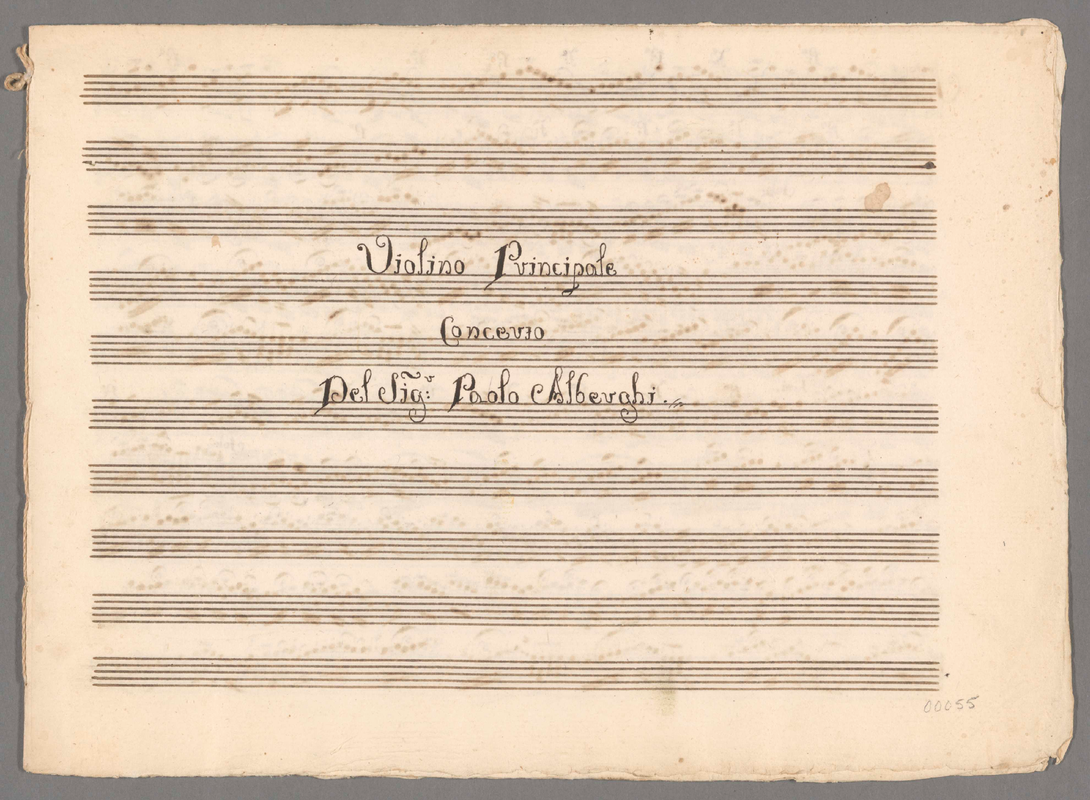 Violino Principale
Concerto
Del Sig:r Paolo Alberghi.
00055